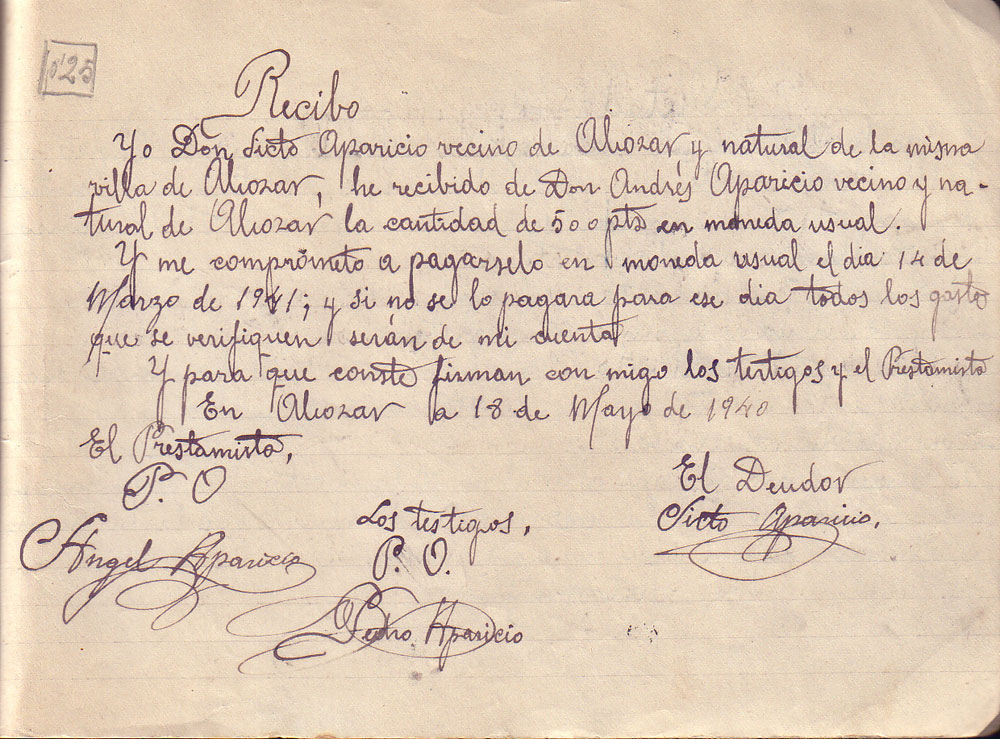 0'25
Recibo
Yo Don Sicto Aparicio vecino de Alcozar y natural de la misma
villa de Alcozar, he recibido de Don Andrés Aparicio vecino y na-
tural de Alcozar la cantidad de 500 pts en moneda usual.
Y me comprometo a pagarselo en moneda usual el dia 14 de
Marzo de 1941; y si no se lo pagara para ese dia todos los gasto
que se verifiquen serán de mi cuenta
Y para que conste firman con migo los testigos y el Prestamista
En Alcozar a 18 de Mayo de 1940
El Prestamista,
P. O
Angel Aparicio
Los testigos,
P. O.
Pedro Aparicio
El Deudor
Sicto Aparicio,